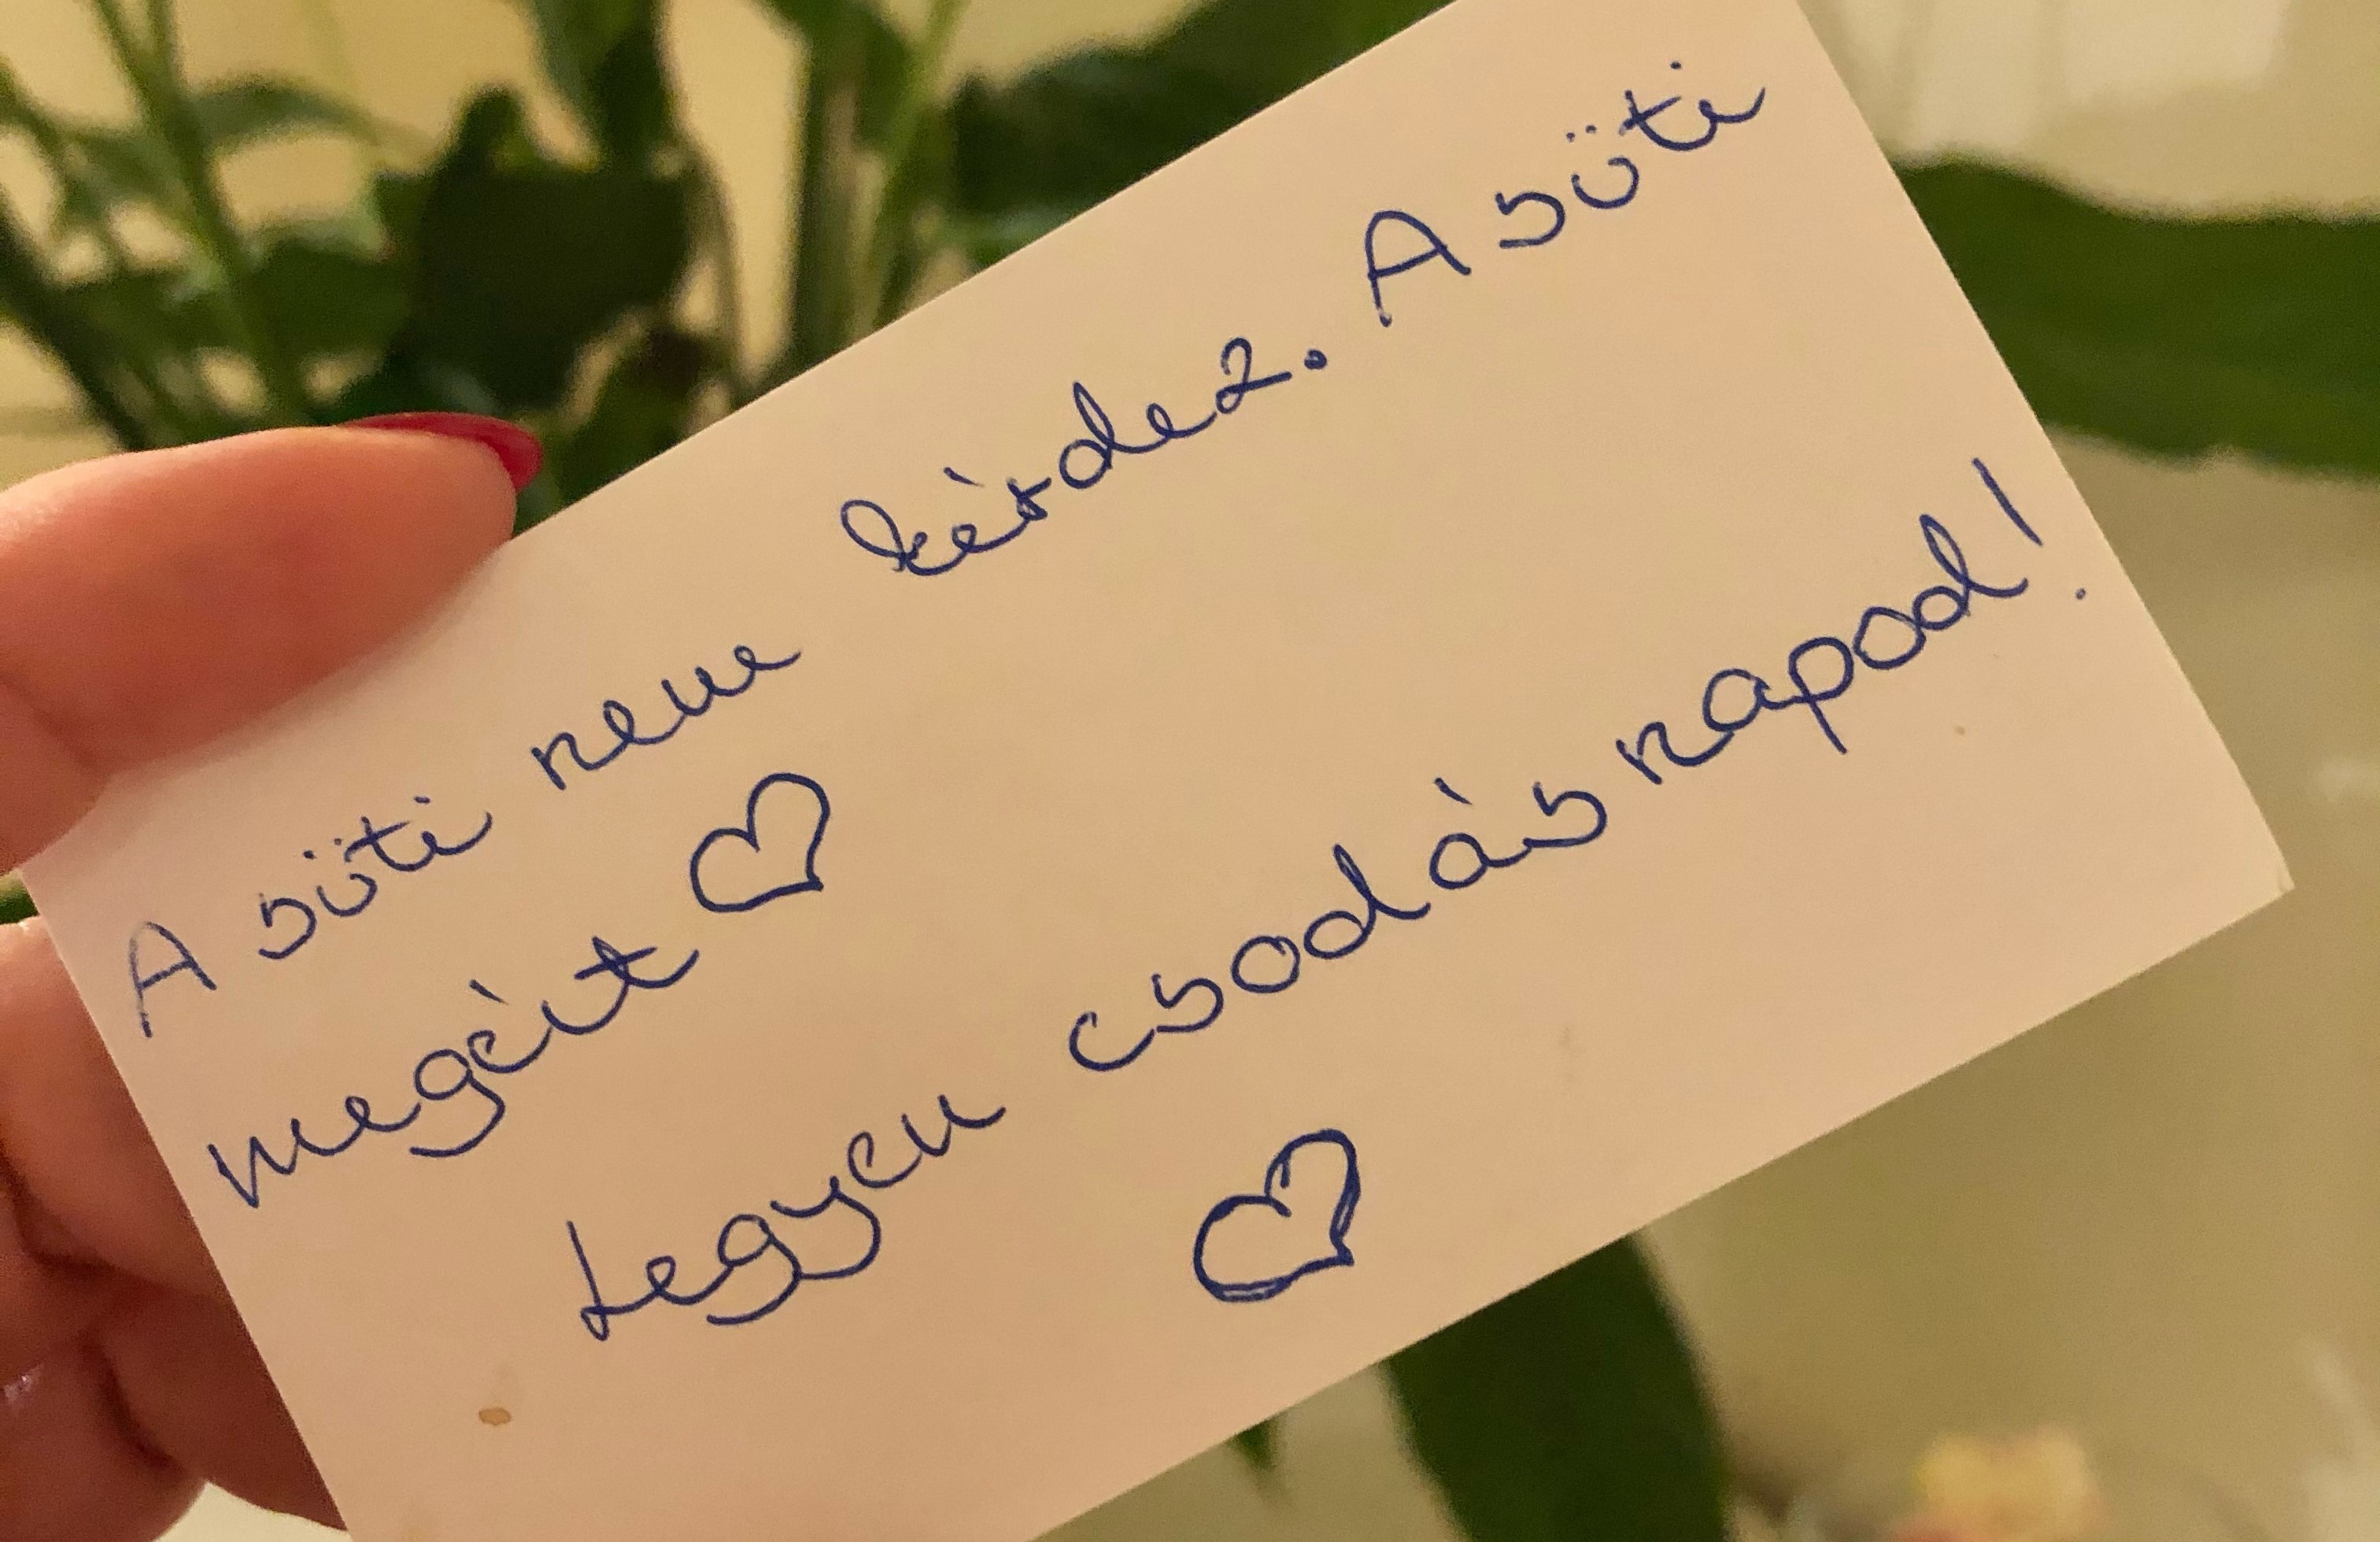 A süti nem kérdez. A süti
megért ♡
Legyen csodás napod!
♡